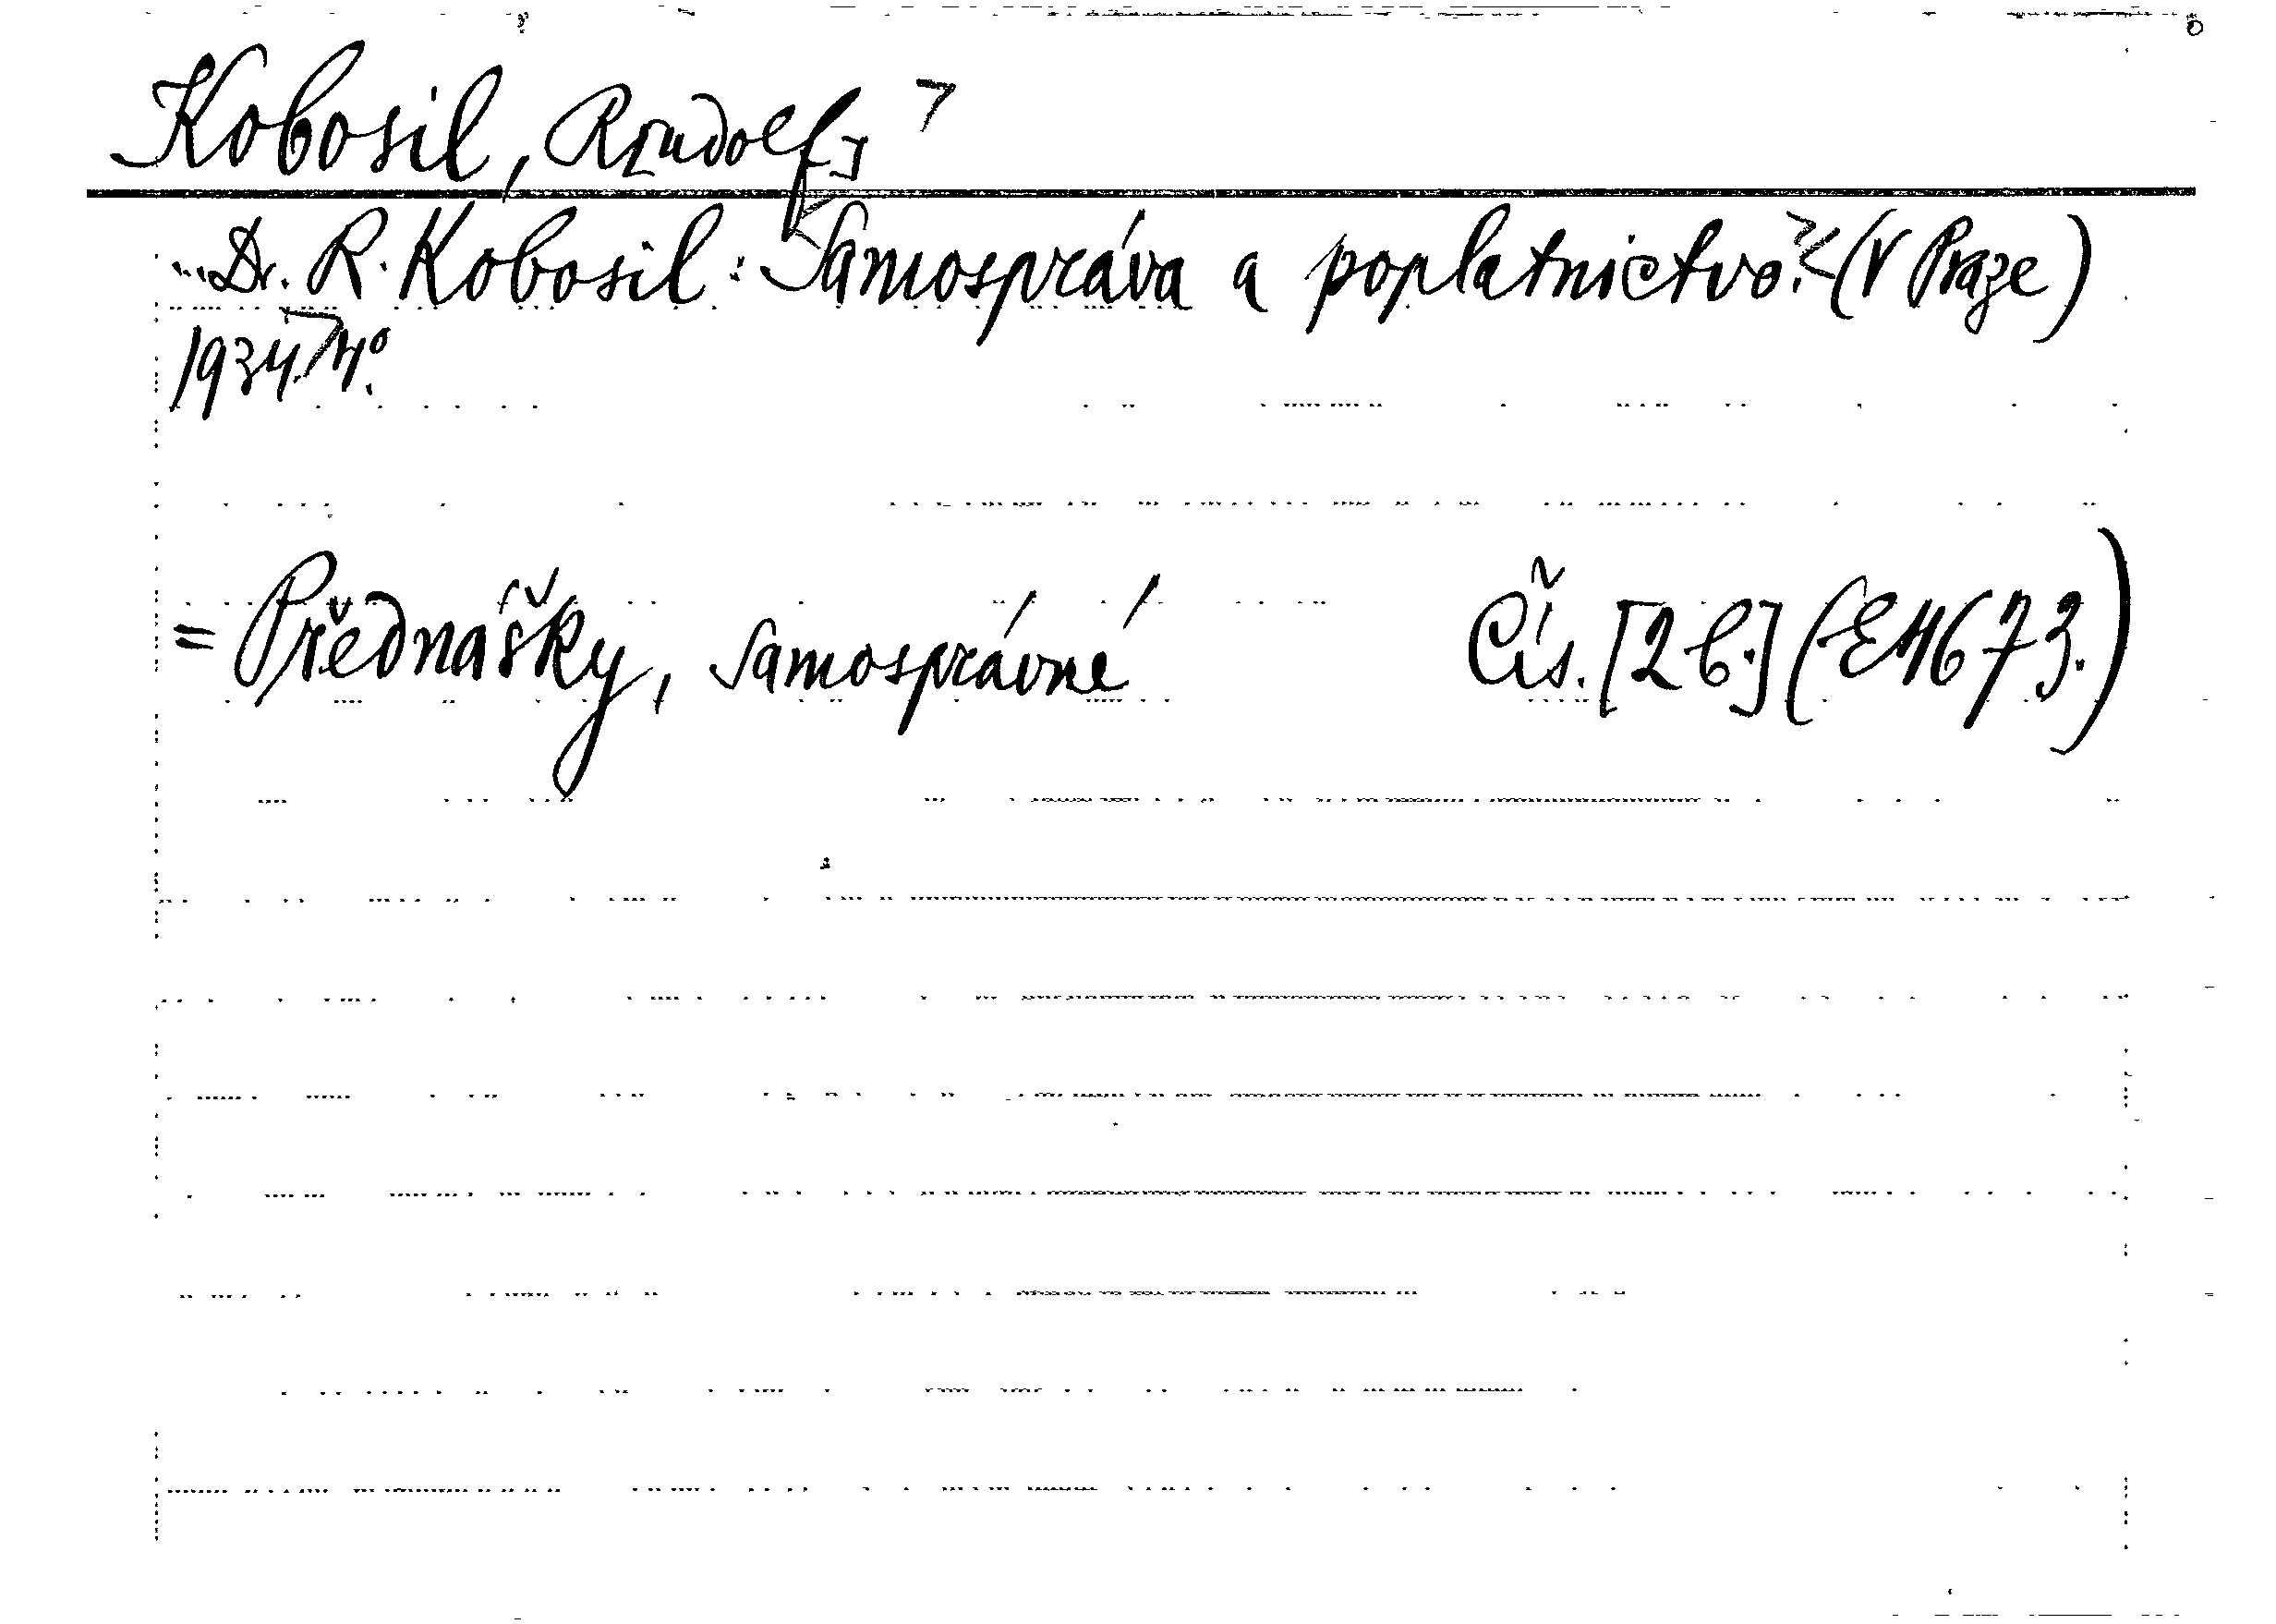 Kobosil, R[udolf]
...Dr. R. Kobosil: Samospráva a poplatnictvo. (V Praze)
1934. 4°.
= Přednášky, samosprávné Čís. [2 b.] (E4673.)